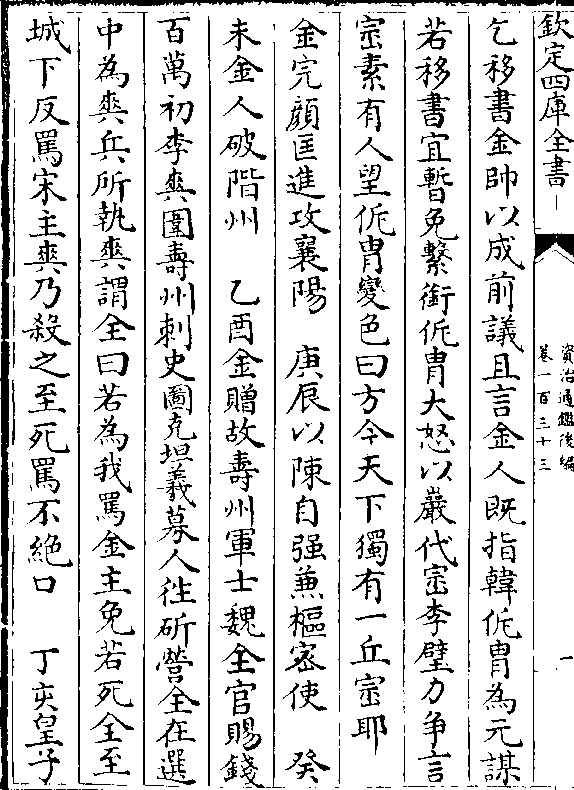 欽定四庫全書
資治通鑑後編
卷一百三十三
一
乞移書金帥以成前議且言金人既指韓侂胄為元謀
若移書宜暫免繫銜侂胄大怒以巖代崈李壁力争言
崈素有人望侂胄變色曰方今天下獨有一丘崈耶
金完顔匡進攻襄陽 庚辰以陳自强兼樞宻使 癸
未金人破階州 乙酉金贈故壽州軍士魏全官賜錢
百萬初李爽圍壽州刺史圖克坦羲募人往斫營全在選
中為爽兵所執爽謂全曰若為我罵金主免若死全至
城下反罵宋主爽乃殺之至死罵不絕口 丁亥皇子